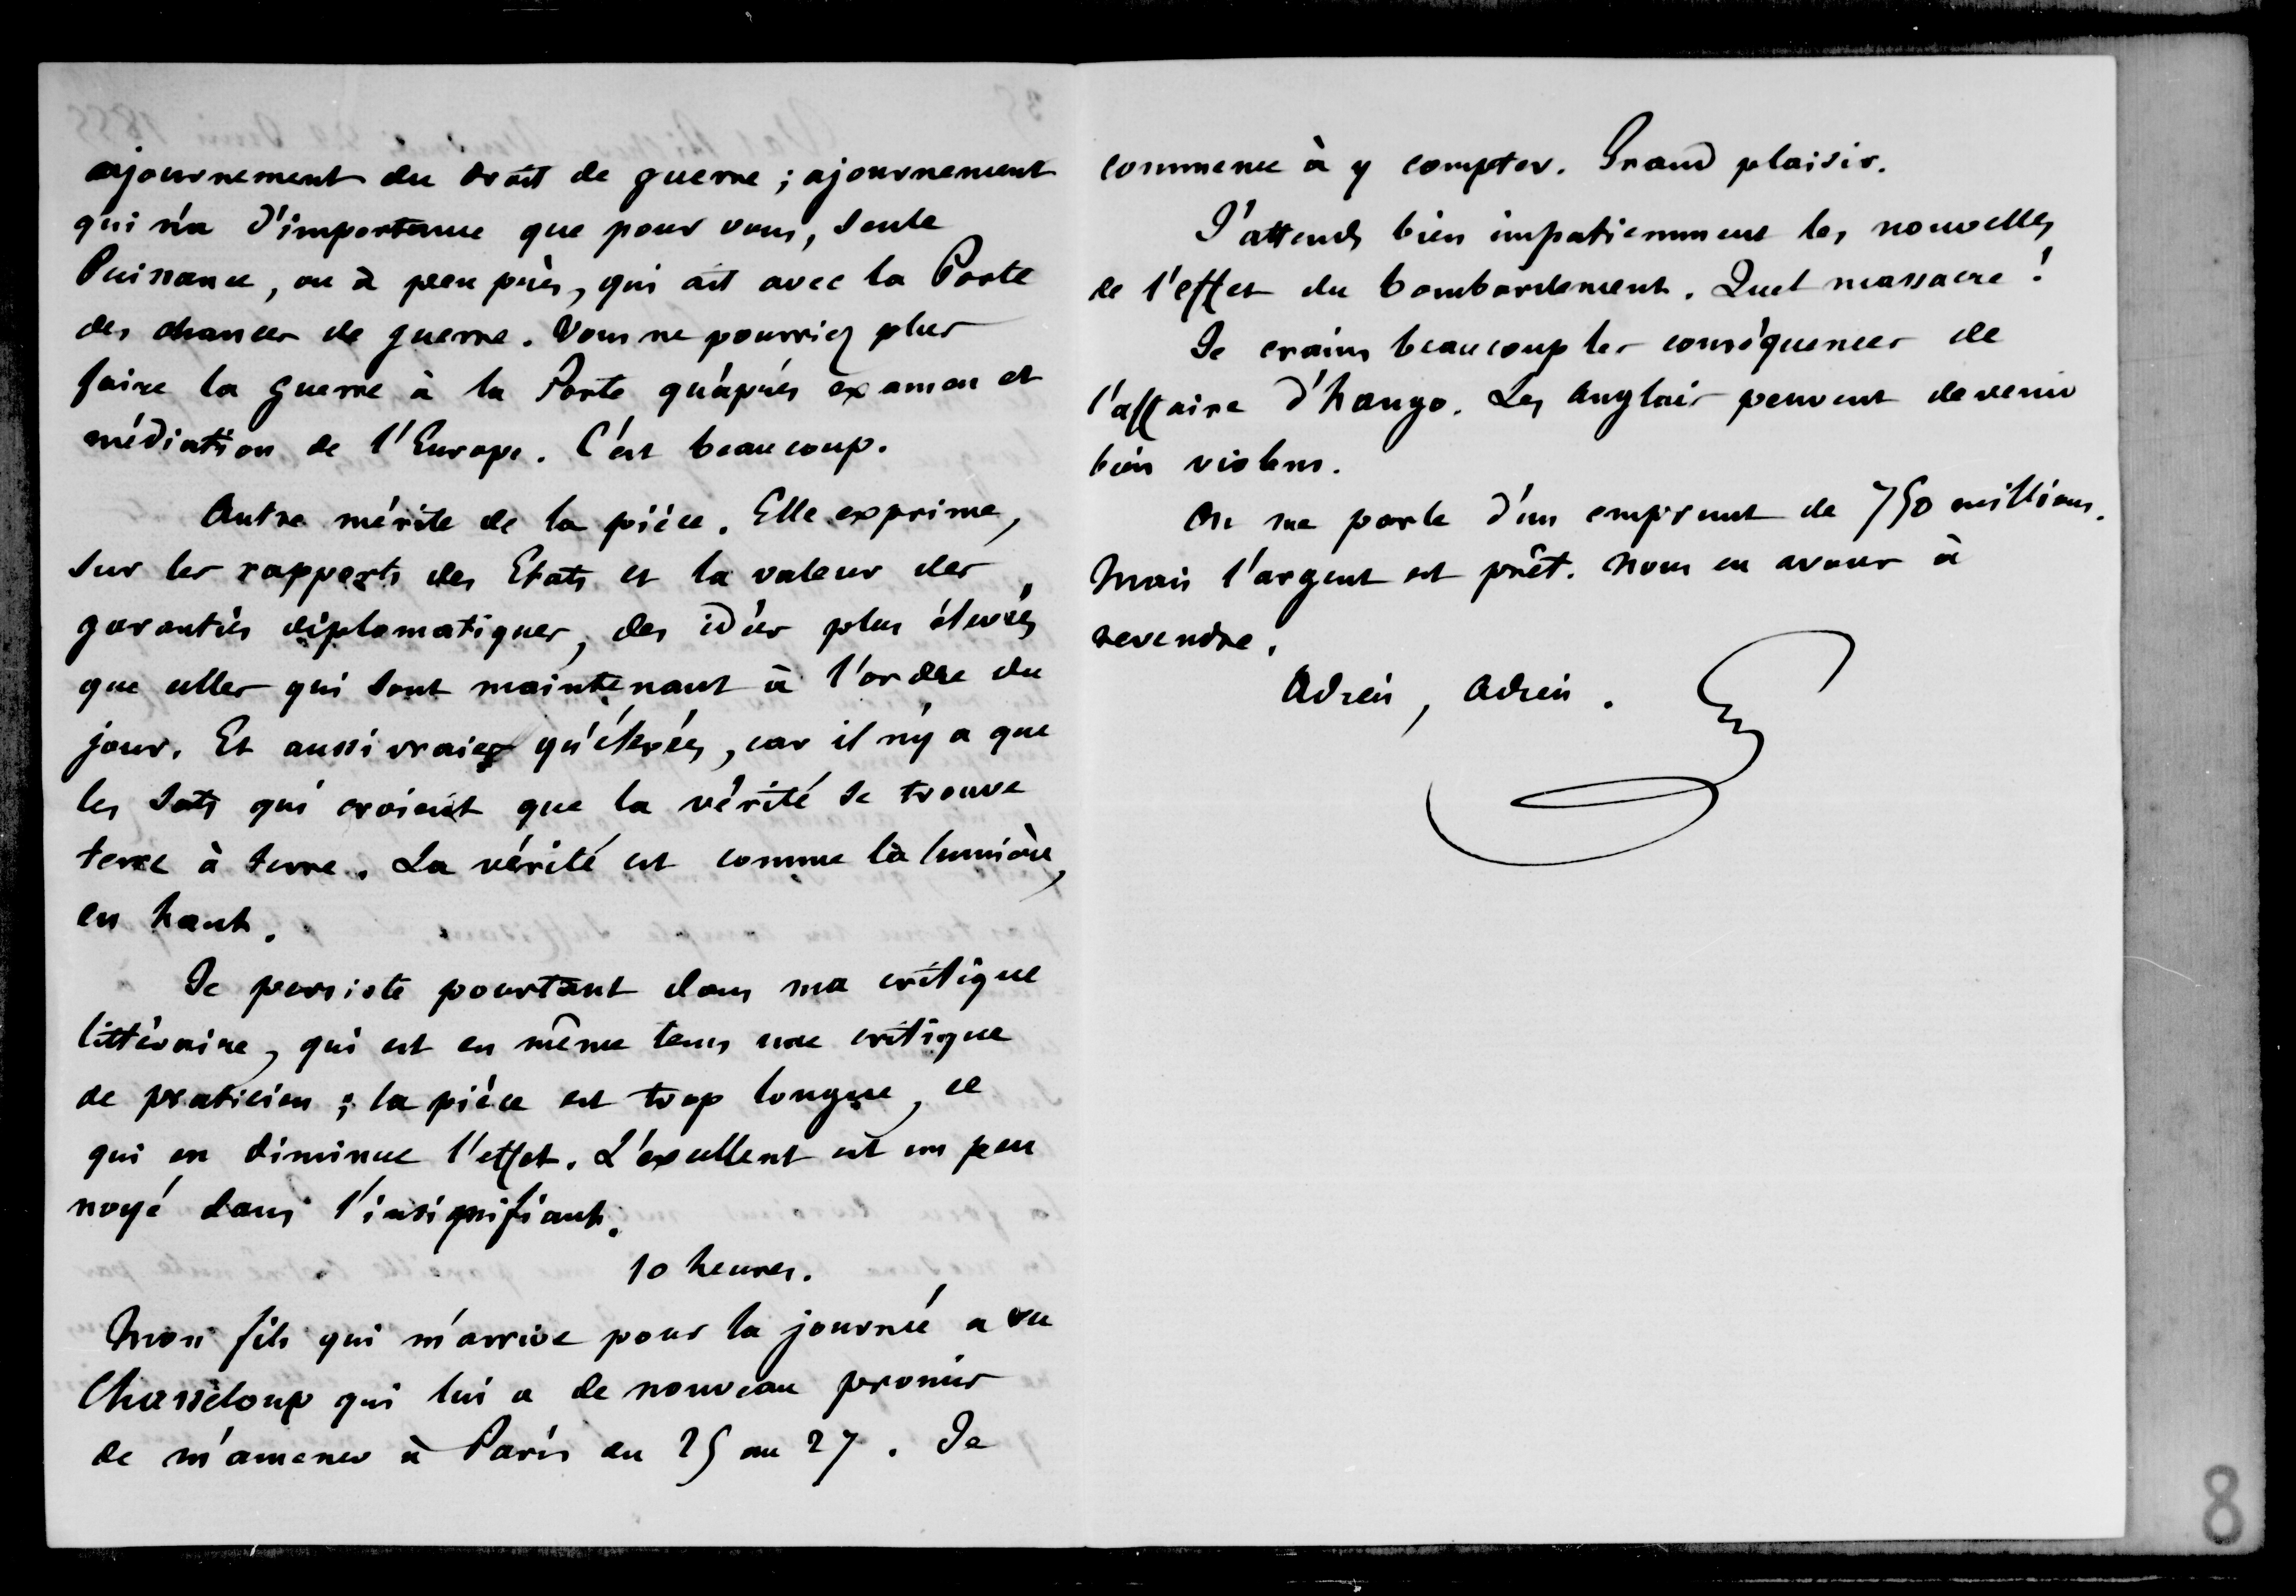 ajournement du droit de guerre ; ajournement
qui n'a d'importance que pour vous, seule
Puissance, ou à peu près, qui ait avec la Porte
des chances de guerre. Vous ne pourriez plus
faire la guerre à la Porte qu'après examen et
médiation de l'Europe. C'est beaucoup.
Autre mérite de la pièce. Elle exprime,
sur les rapports des Etats et la valeur des
garanties diplomatiques, des idées plus élevées
que celles qui sont maintenant à l'ordre du
jour. Et aussi vraies qu'élevées, car il n'y a que
les sots qui croient que la vérité se trouve
terre à terre. La vérité est comme la lumière,
en haut.
Je persiste pourtant dans ma critique
littéraire, qui est en même tems une critique
de praticien ; la pièce est trop longue, ce
qui en diminue l'effet. L'excellent est un peu
noyé dans l'insignifiant.
10 heures.
Mon fils qui m'arrive pour la journée a vu
Chasseloup qui lui a de nouveau promis
de m'amener à Paris du 25 au 27. Je
commence à y compter. Grand plaisir.
J'attends bien impatiemment les nouvelles
de l'effet du bombardement. Quel massacre !
Je crains beaucoup les conséquences de
l'affaire d'hango. Les Anglais peuvent devenir
bien violens.
On me parle d'un emprunt de 750 millions.
Mais l'argent est prêt. Nous en avons à
revendre.
Adieu, Adieu.
8